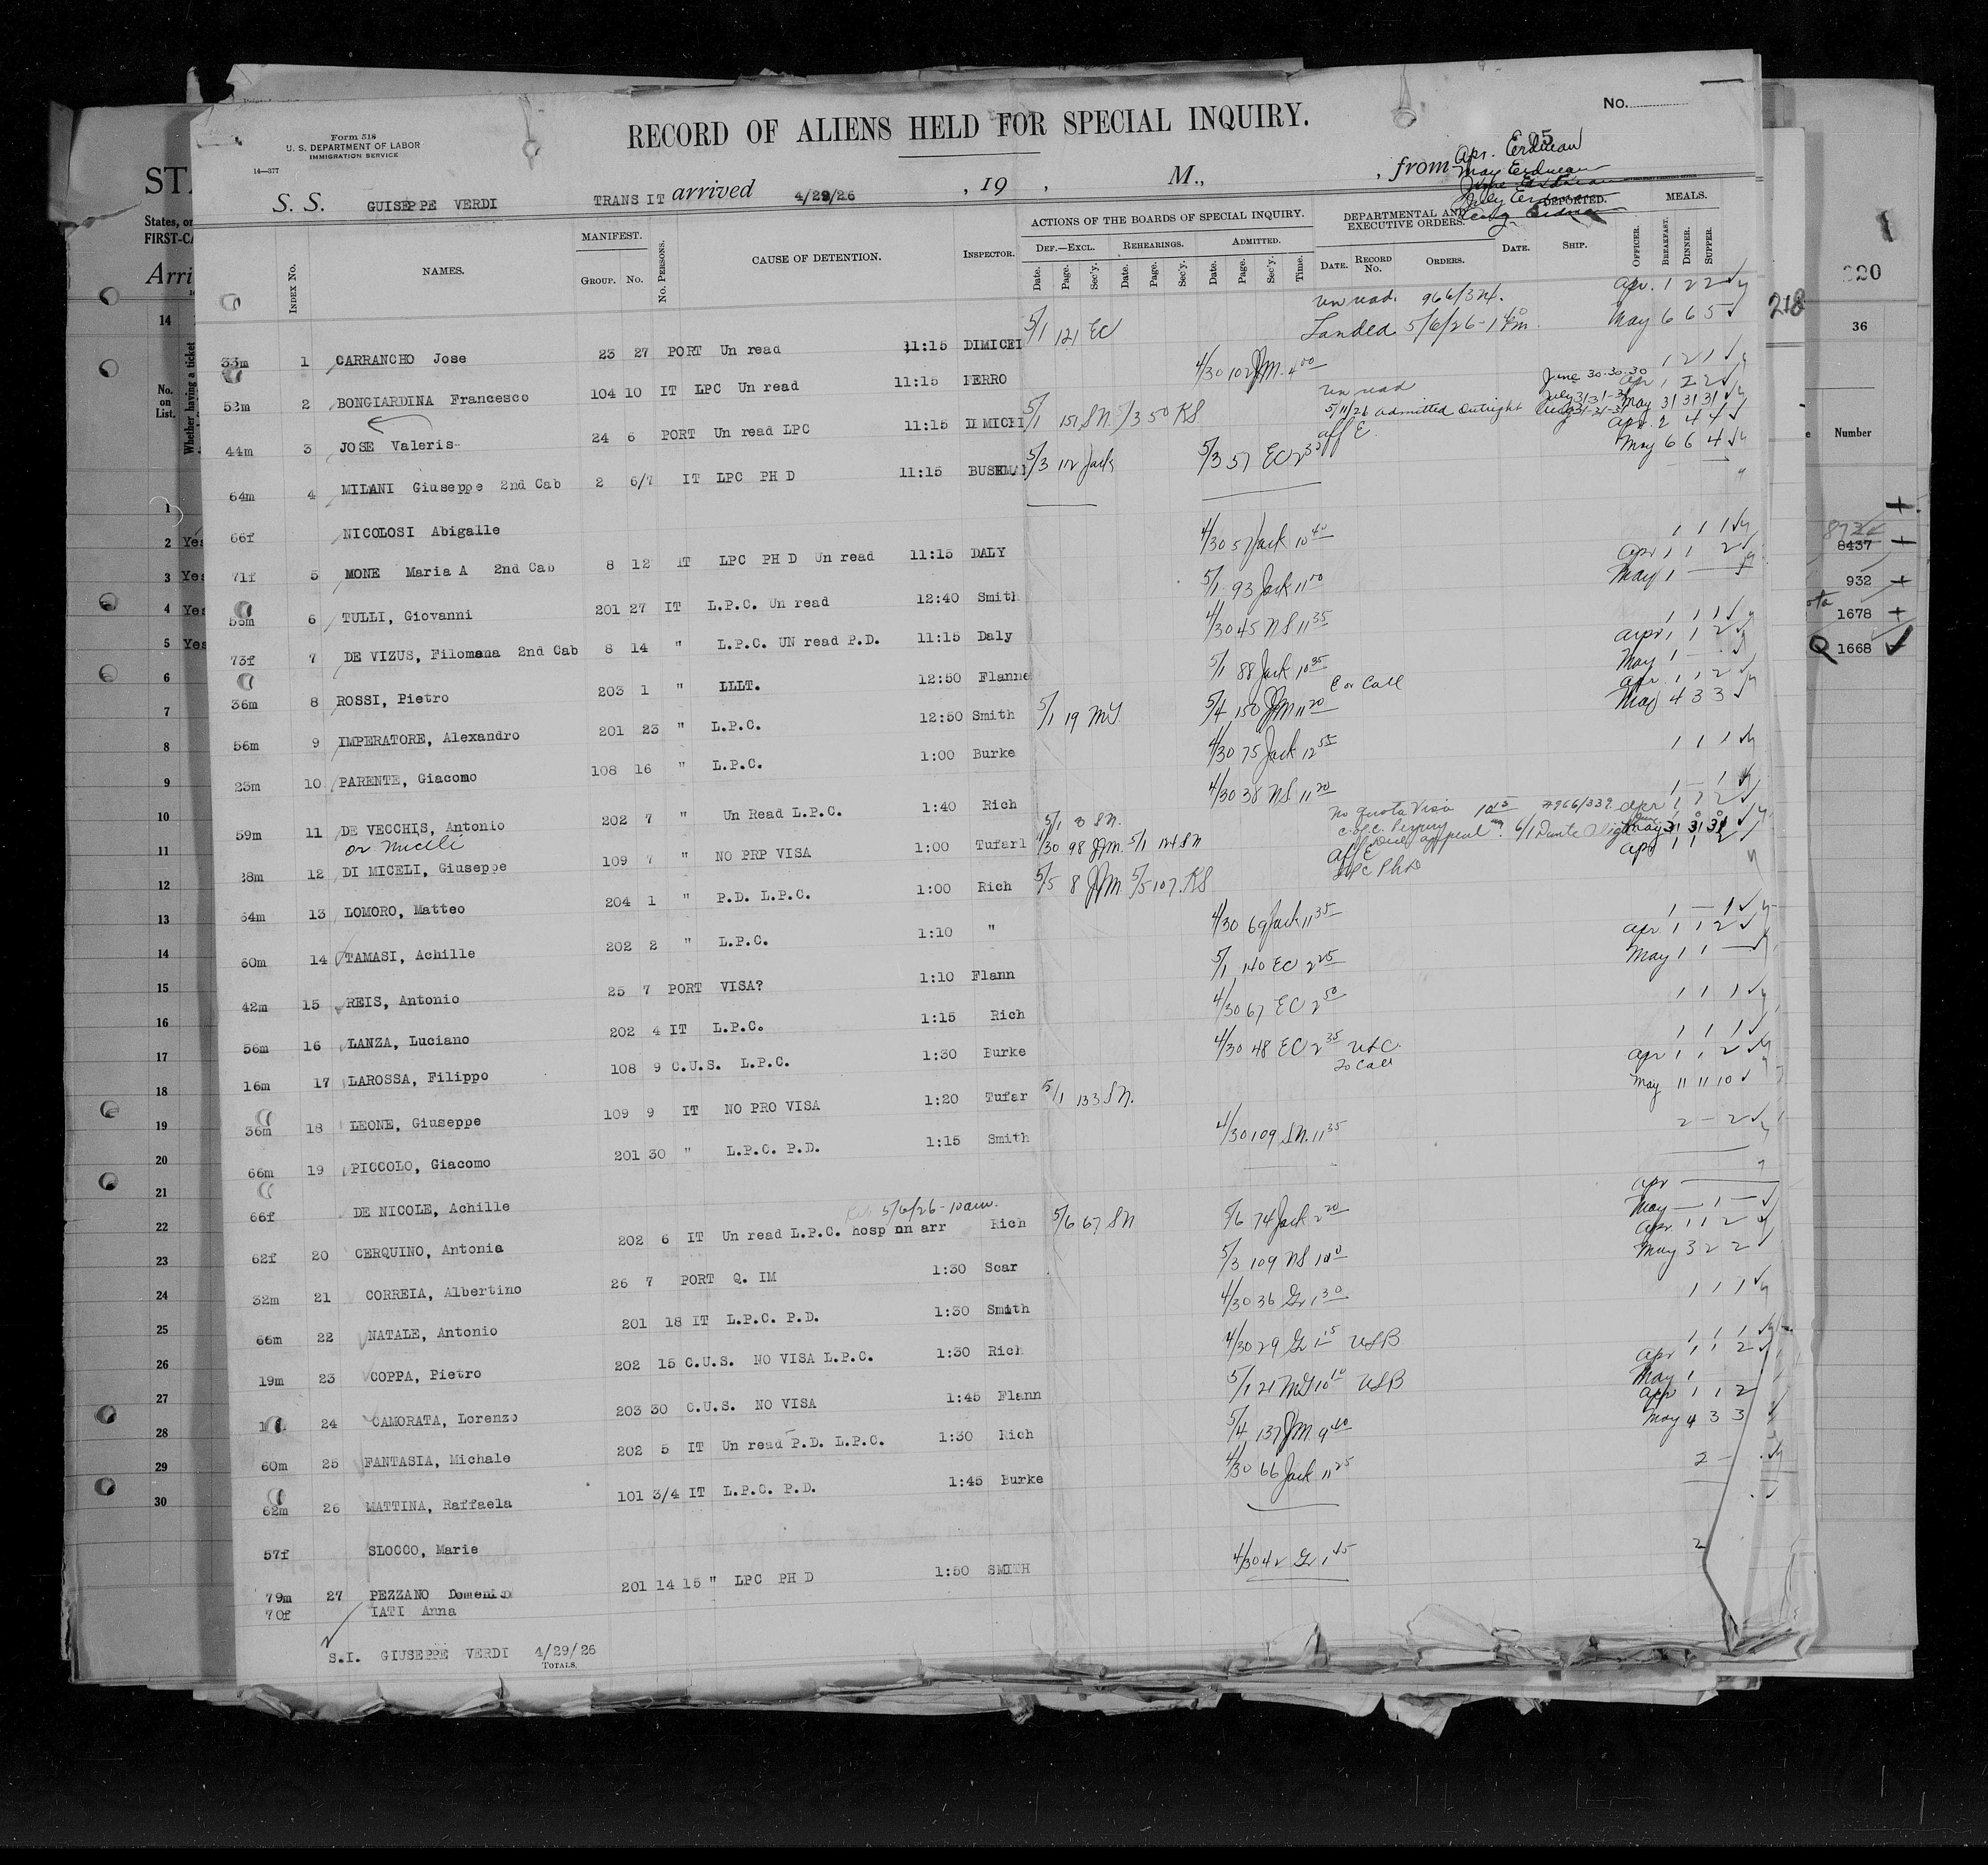 No.
Form 318
U. S. DEPARTMENT OF LABOR
IMMIGRATION SERVICE
14—377
RECORD OF ALIENS HELD FOR SPECIAL INQUIRY.
S. S. GUISEPPE VERDI TRANS IT arrived 4/29/26 , 19 , M., , from
Apr. Erdman
May Erdman
ACTIONS OF THE BOARDS OF SPECIAL INQUIRY. DEPARTMENTAL AND EXECUTIVE ORDERS. DEPORTED. MEALS.
INDEX No. NAMES. MANIFEST. GROUP. No. No. PERSONS. CAUSE OF DETENTION. INSPECTOR. DEF.—EXCL. REHEARINGS. ADMITTED.
Date. Page. Sec'y. Date. Page. Sec'y. Date. Page. Sec'y. Time. DATE. RECORD No. ORDERS. DATE. SHIP. OFFICER. BREAKFAST. DINNER. SUPPER.
33m 1 CARRANCHO Jose 23 27 PORT Un read 11:15 DIMICEI 5/1 121 EC 966/324. Landed 5/6/26 Apr. 1 2 2 May 6 6 5
52m 2 BONGIARDINA Francesco 104 10 IT LPC Un read 11:15 FERRO 4/30 102 JM. 4 00 1 2 1
44m 3 JOSE Valeris 24 6 PORT Un read LPC 11:15 DIMICHI 5/1 151 SN. 5/3 50 KS 5/11/26 admitted Outright June 30-30-30 Apr 1 2 2 May 31 31 31
64m 4 MILANI Giuseppe 2nd Cab 2 6/7 IT LPC PH D 11:15 BUSHMA 5/3 112 Jack 5/3 57 EC 2 35 aff E. Apr. 2 4 4 May 6 6 4
66f NICOLOSI Abigalle
71f 5 MONE Maria A 2nd Cab 8 12 IT LPC PH D Un read 11:15 DALY 4/30 57 Jack 10 40 1 1 1
6 TULLI, Giovanni 201 27 IT L.P.C. Un read 12:40 Smith 5/1 93 Jack 11 00 Apr 1 1 2 May 1
73f 7 DE VIZUS, Filomana 2nd Cab 8 14 " L.P.C. UN read P.D. 11:15 Daly 4/30 45 NS 11 35 1 1 1
36m 8 ROSSI, Pietro 203 1 " LLLT. 12:50 Flanne 5/1 88 Jack 10 35 Apr 1 1 2 May 1
56m 9 IMPERATORE, Alexandro 201 23 " L.P.C. 12:50 Smith 5/1 19 5/4 150 JM 11 20 E or Call Apr 1 1 2 May 4 3 3
23m 10 PARENTE, Giacomo 108 16 " L.P.C. 1:00 Burke 4/30 75 Jack 12 55 1 1 1
59m 11 DE VECCHIS, Antonio 202 7 " Un Read L.P.C. 1:40 Rich 4/30 38 NS 11 20 1 — 1
or Miceli
28m 12 DI MICELI, Giuseppe 109 7 " NO PRP VISA 1:00 Tufarl 5/1 3 SN. 4/30 98 JM. 5/1 124 SN no quota Visa #966/339 aff E
64m 13 LOMORO, Matteo 204 1 " P.D. L.P.C. 1:00 Rich 5/5 8 JM 5/5 107. KS LPC PhD Apr 1 1 2
60m 14 TAMASI, Achille 202 2 " L.P.C. 1:10 " 4/30 69 Jack 11 35 1 — 1
42m 15 REIS, Antonio 25 7 PORT VISA? 1:10 Flann 5/1 140 EC 2 25 Apr 1 1 2 May 1 1 —
56m 16 LANZA, Luciano 202 4 IT L.P.C. 1:15 Rich 4/30 67 EC 2 50 1 1 1
16m 17 LAROSSA, Filippo 108 9 C.U.S. L.P.C. 1:30 Burke 4/30 48 EC 2 35 USC. To Call 1 1 1
36m 18 LEONE, Giuseppe 109 9 IT NO PRO VISA 1:20 Tufar 5/1 133 SN. Apr 1 1 2 May 11 11 10
66m 19 PICCOLO, Giacomo 201 30 " L.P.C. P.D. 1:15 Smith 4/30 109 SN. 11 35 2 — 2
66f DE NICOLE, Achille
5/6/26 - 10 am.
62f 20 CERQUINO, Antonia 202 6 IT Un read L.P.C. hosp on arr Rich 5/6 67 SN 5/6 74 Jack 2 20 Apr — May — 1 —
32m 21 CORREIA, Albertino 26 7 PORT Q. IM 1:30 Scar 5/3 109 NS 10 10 Apr 1 1 2 May 3 2 2
66m 22 NATALE, Antonio 201 18 IT L.P.C. P.D. 1:30 Smith 4/30 36 Gr 1 30 1 1 1
19m 23 COPPA, Pietro 202 15 C.U.S. NO VISA L.P.C. 1:30 Rich 4/30 29 Gr 1 15 USB 1 1 1
24 CAMORATA, Lorenzo 203 30 C.U.S. NO VISA 1:45 Flann 5/1 21 10 10 USB Apr 1 1 2 May 1
60m 25 FANTASIA, Michale 202 5 IT Un read P.D. L.P.C. 1:30 Rich 5/4 137 JM. 9 40 Apr 1 1 2 May 4 3 3
62m 26 MATTINA, Raffaela 101 3/4 IT L.P.C. P.D. 1:45 Burke 4/30 66 Jack 11 25 2 —
57f SLOCCO, Marie
79m 27 PEZZANO Domenic 201 14 15 " LPC PH D 1:50 SMITH 4/30 42 Gr 1 45 2
70f IATI Anna
S.I. GIUSEPPE VERDI 4/29/26
TOTALS.
States, or
FIRST-CA
Arri
14
No. on List.
Whether having a ticket
1
2 Yes
3 Yes
4 Yes
5 Yes
6
7
8
9
10
11
12
13
14
15
16
17
18
19
20
21
22
23
24
25
26
27
28
29
30
218
36
Number
8437
932
1678
1668